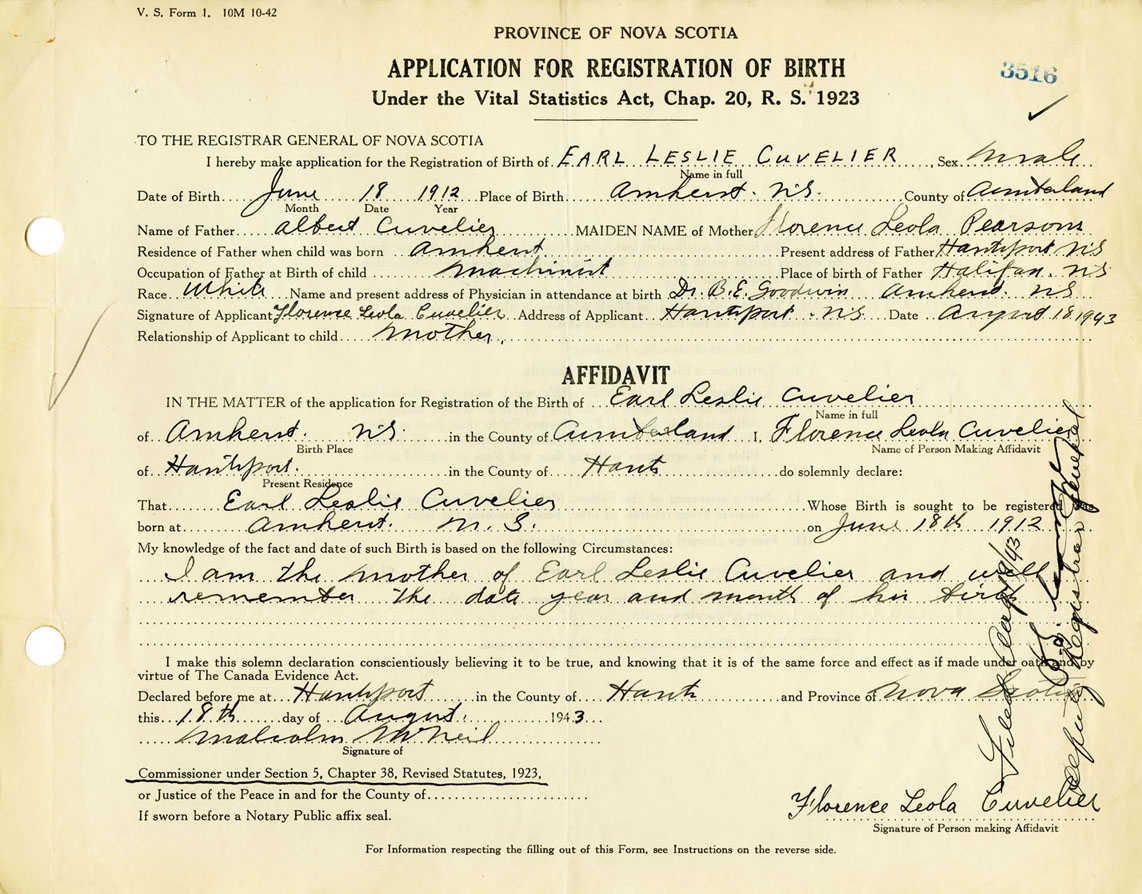 V. S. Form 1. 10M 10-42
PROVINCE OF NOVA SCOTIA
APPLICATION FOR REGISTRATION OF BIRTH
3516
Under the Vital Statistics Act, Chap. 20, R. S. 1923
TO THE REGISTRAR GENERAL OF NOVA SCOTIA
I hereby make application for the Registration of Birth of EARL LESLIE CUVELIER, Sex Male
Name in full
Date of Birth June 18 1912 Place of Birth Amherst. N.S. County of Cumberland
Month Date Year
Name of Father Albert Cuvelier MAIDEN NAME of Mother Florence Leola Pearson
Residence of Father when child was born Amherst Present address of Father Hantsport NS
Occupation of Father at Birth of child Machinist Place of birth of Father Halifax. NS
Race White Name and present address of Physician in attendance at birth Dr. B.E. Goodwin Amherst. NS
Signature of Applicant Florence Leola Cuvelier Address of Applicant Hantsport. NS Date August 18 1943
Relationship of Applicant to child Mother
AFFIDAVIT
IN THE MATTER of the application for Registration of the Birth of Earl Leslie Cuvelier
Name in full
of Amherst. NS in the County of Cumberland I, Florence Leola Cuvelier
Birth Place Name of Person Making Affidavit
of Hantsport. in the County of Hants do solemnly declare:
Present Residence
That Earl Leslie Cuvelier Whose Birth is sought to be registered
born at Amherst. N.S. on June 18th 1912
My knowledge of the fact and date of such Birth is based on the following Circumstances:
I am the mother of Earl Leslie Cuvelier and well
remember the date year and month of his birth
I make this solemn declaration conscientiously believing it to be true, and knowing that it is of the same force and effect as if made under oath and by
virtue of The Canada Evidence Act.
Declared before me at Hantsport in the County of Hants and Province of Nova Scotia
this 18th day of August. 1943
Malcolm McNeil
Signature of
Commissioner under Section 5, Chapter 38, Revised Statutes, 1923,
or Justice of the Peace in and for the County of
If sworn before a Notary Public affix seal.
Florence Leola Cuvelier
Signature of Person making Affidavit
For Information respecting the filling out of this Form, see Instructions on the reverse side.
Filed
Deputy Registrar General